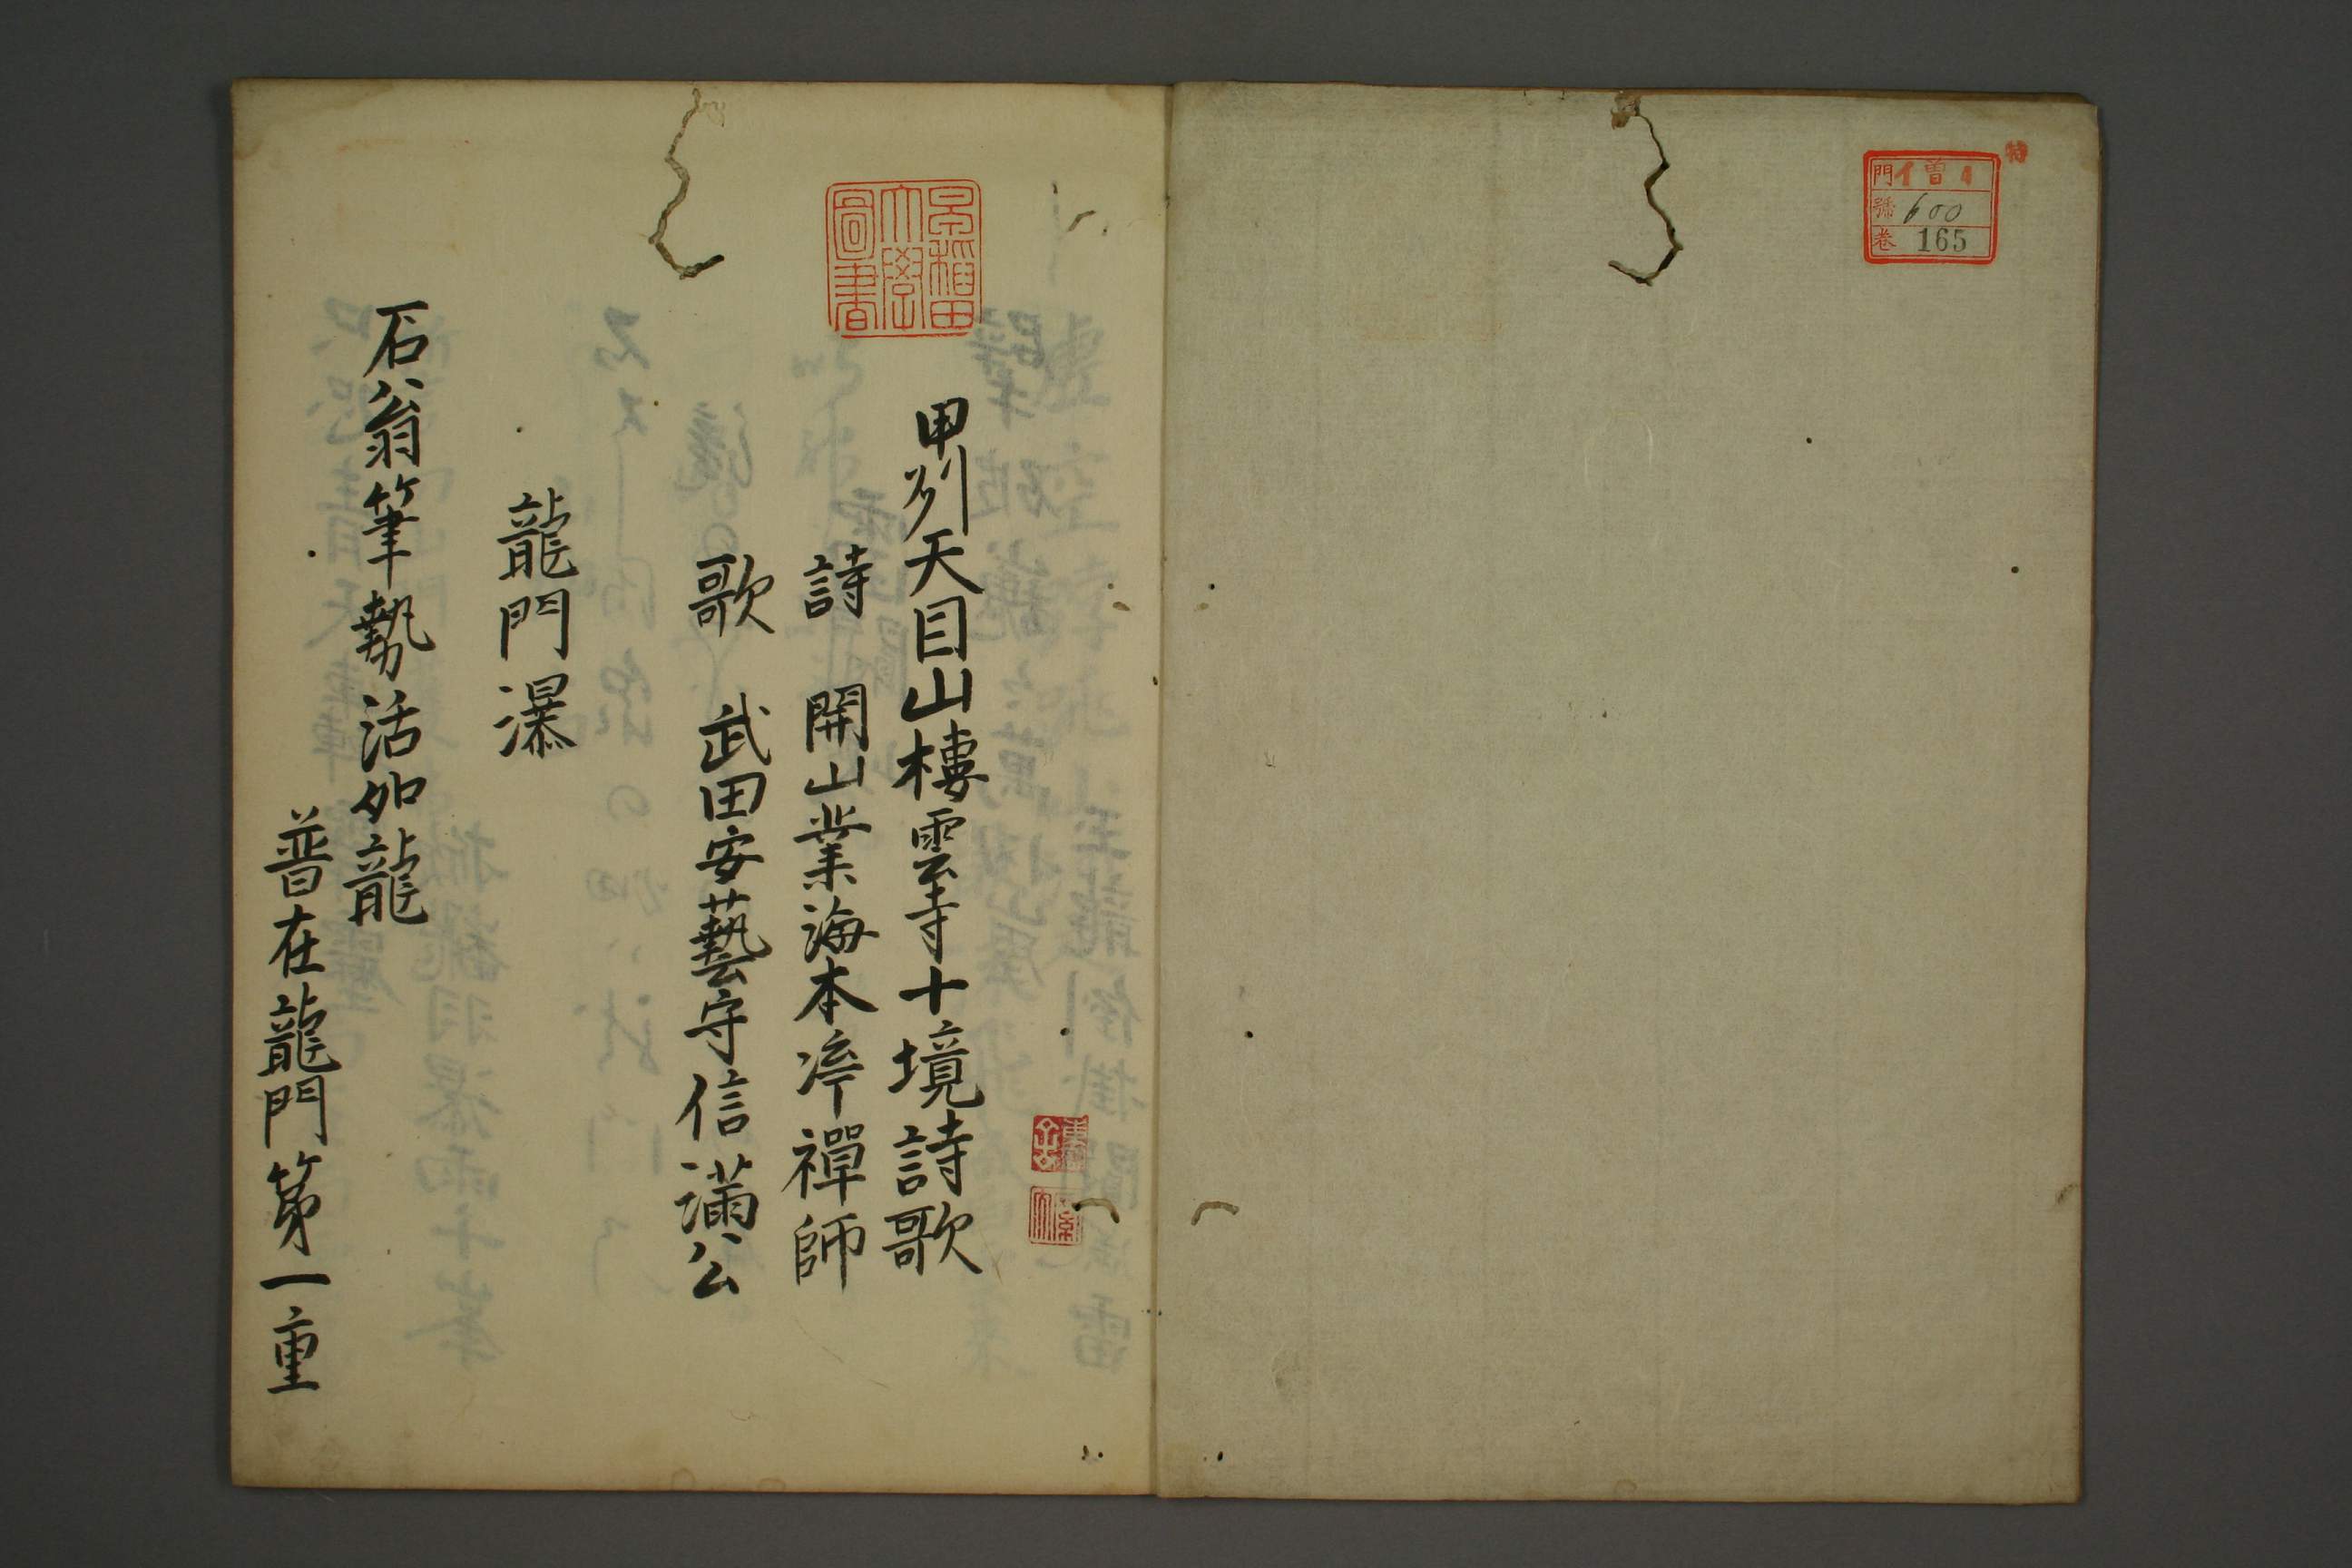 特
門 イ 曽 4
號 600
卷 165
早稲田大學圖書
甲州天目山棲雲寺十境詩歌
詩 開山業海本淬禪師
歌 武田安藝守信滿公
龍門瀑
石公翁筆勢活如龍
普在龍門第一重